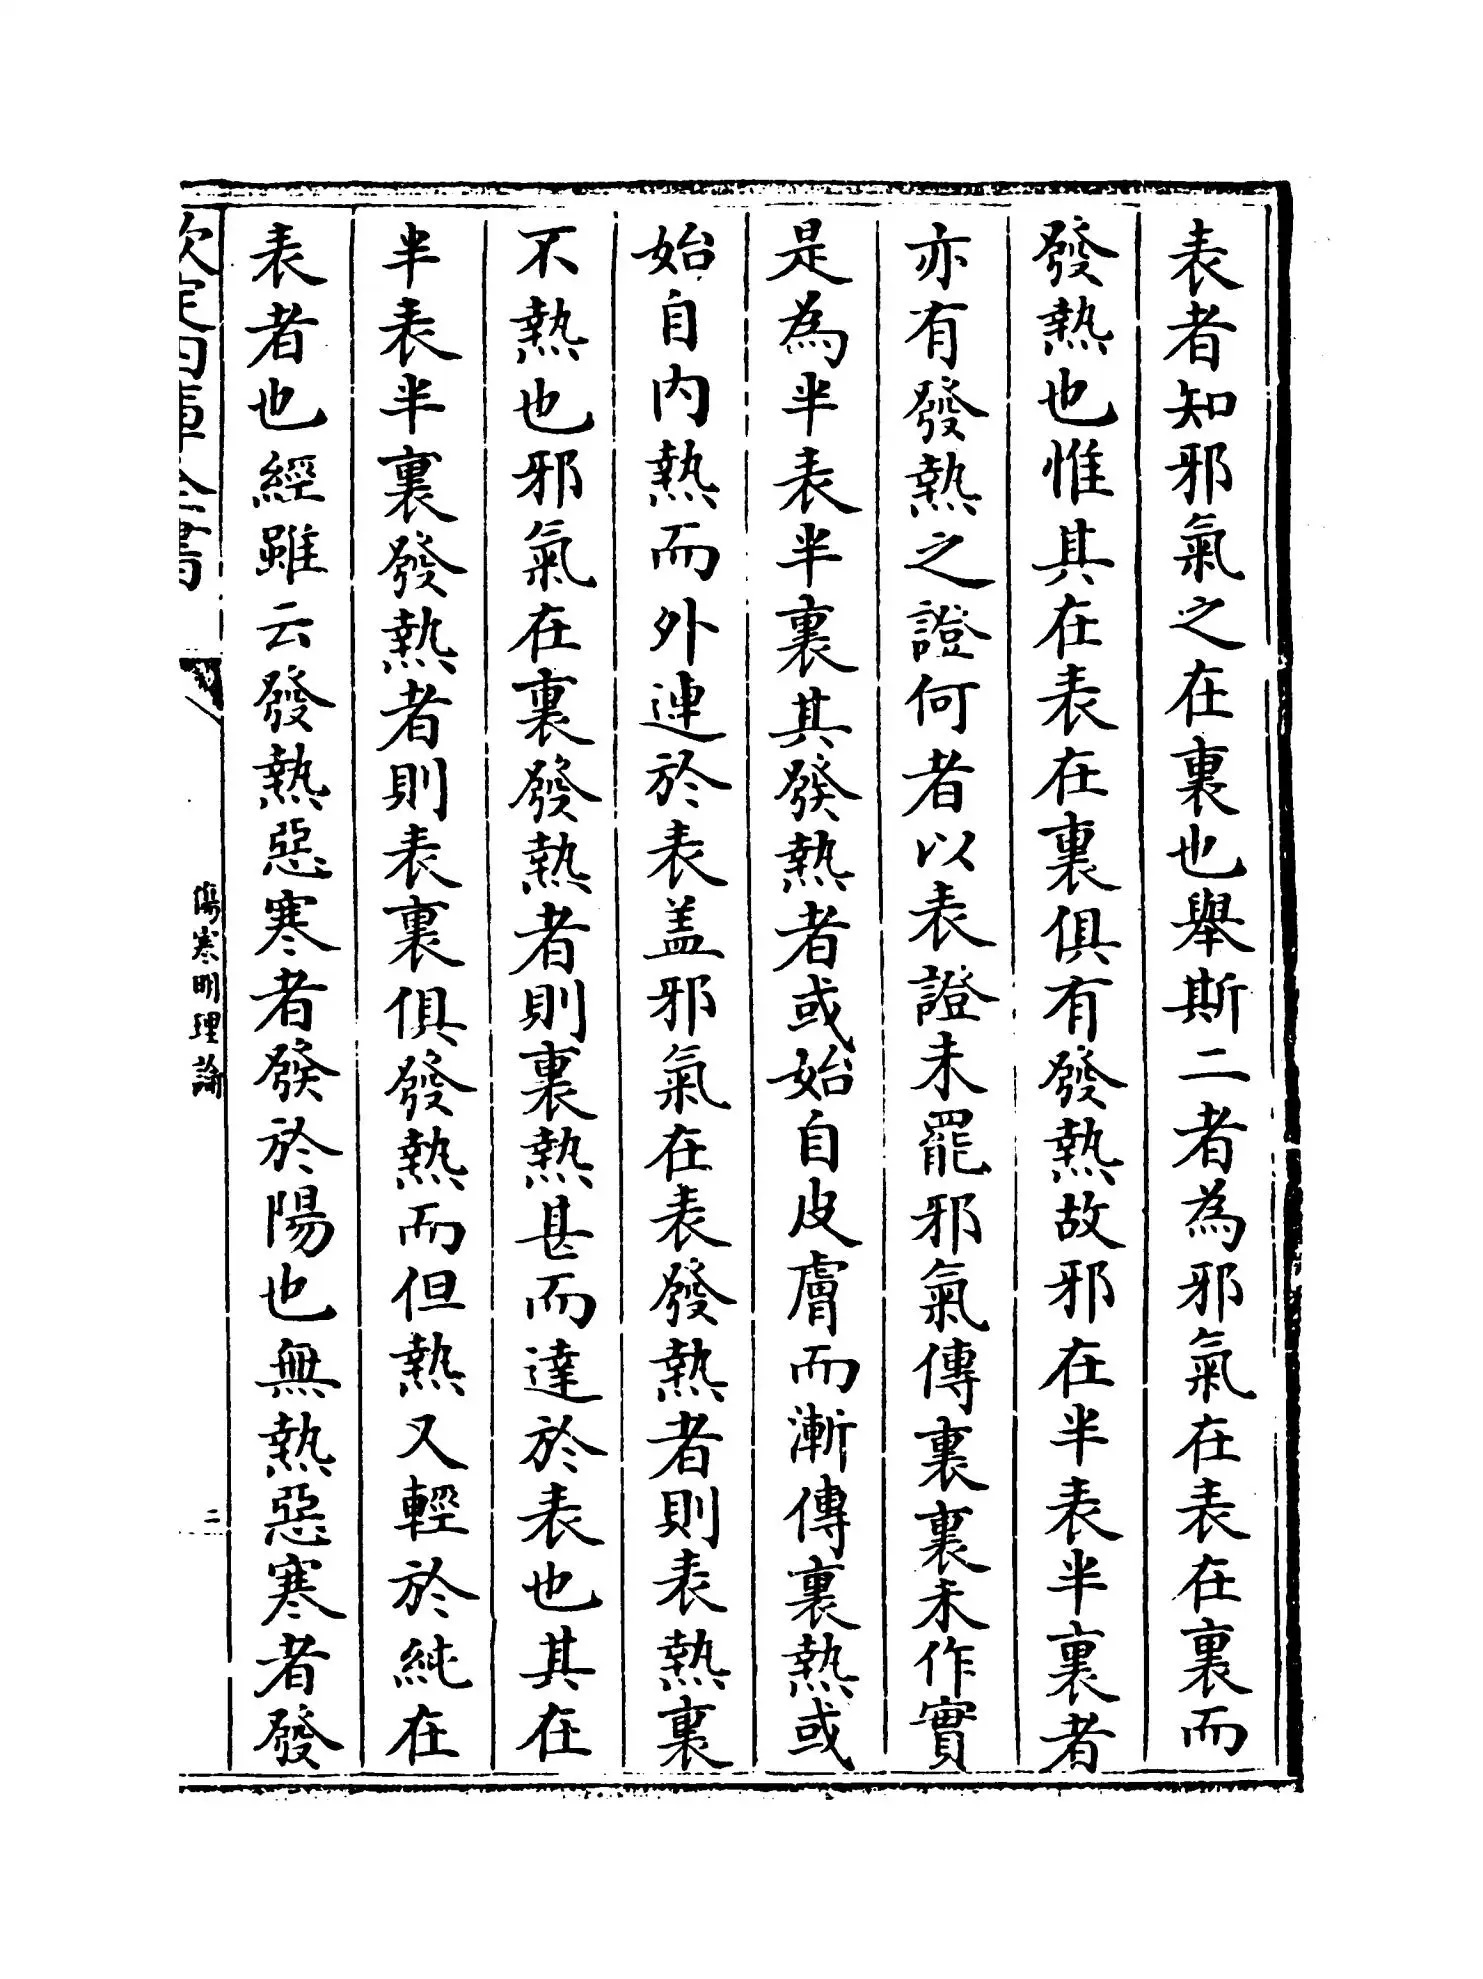 表者知邪氣之在裏也舉斯二者為邪氣在表在裏而
發熱也惟其在表在裏俱有發熱故邪在半表半裏者
亦有發熱之證何者以表證未罷邪氣傳裏裏未作實
是為半表半裏其發熱者或始自皮膚而漸傳裏熱或
始自内熱而外連於表盖邪氣在表發熱者則表熱裏
不熱也邪氣在裏發熱者則裏熱甚而達於表也其在
半表半裏發熱者則表裏俱發熱而但熱又輕於純在
表者也經雖云發熱惡寒者發於陽也無熱惡寒者發
欽定四庫全書
傷寒明理論
二